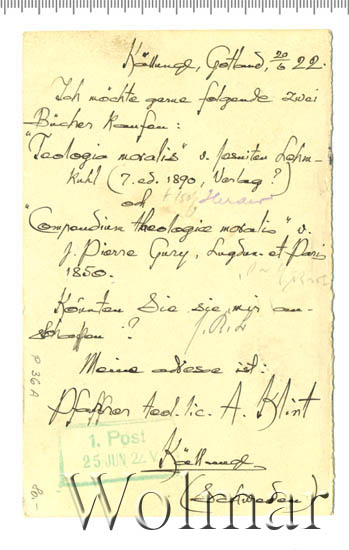 Källunge, Gotland, 20/6 22.
Ich möchte gerne folgende zwei
Bücher kaufen:
"Teologia moralis" v. Jesuiten Lehm-
kuhl (7. ed. 1890, Verlag?)
och Herder
"Compendium theologiæ moralis" v.
J. Pierre Gury, Lugdun. et Paris
1850.
Könnten Sie sie mir an-
schaffen?
Meine adresse ist:
Pfarrer teol. lic. A. Klint
Källunge
(Schweden)
1. Post
25 JUN 22 V
P 36 A
80,-
Wolmar